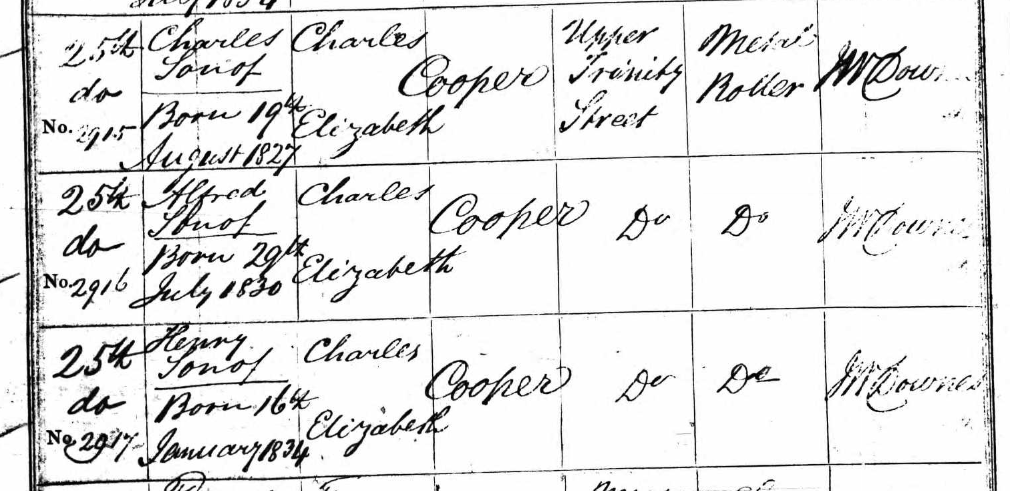 July 1834
25th
do
No. 2915
Charles
Son of
Born 19th
August 1827
Charles
Elizabeth
Cooper
Upper
Trinity
Street
Metal
Roller
JW Downes
25th
do
No. 2916
Alfred
Son of
Born 29th
July 1830
Charles
Elizabeth
Cooper
Do
Do
JW Downes
25th
do
No. 2917
Henry
Son of
Born 16th
January 1834
Charles
Elizabeth
Cooper
Do
Do
JW Downes